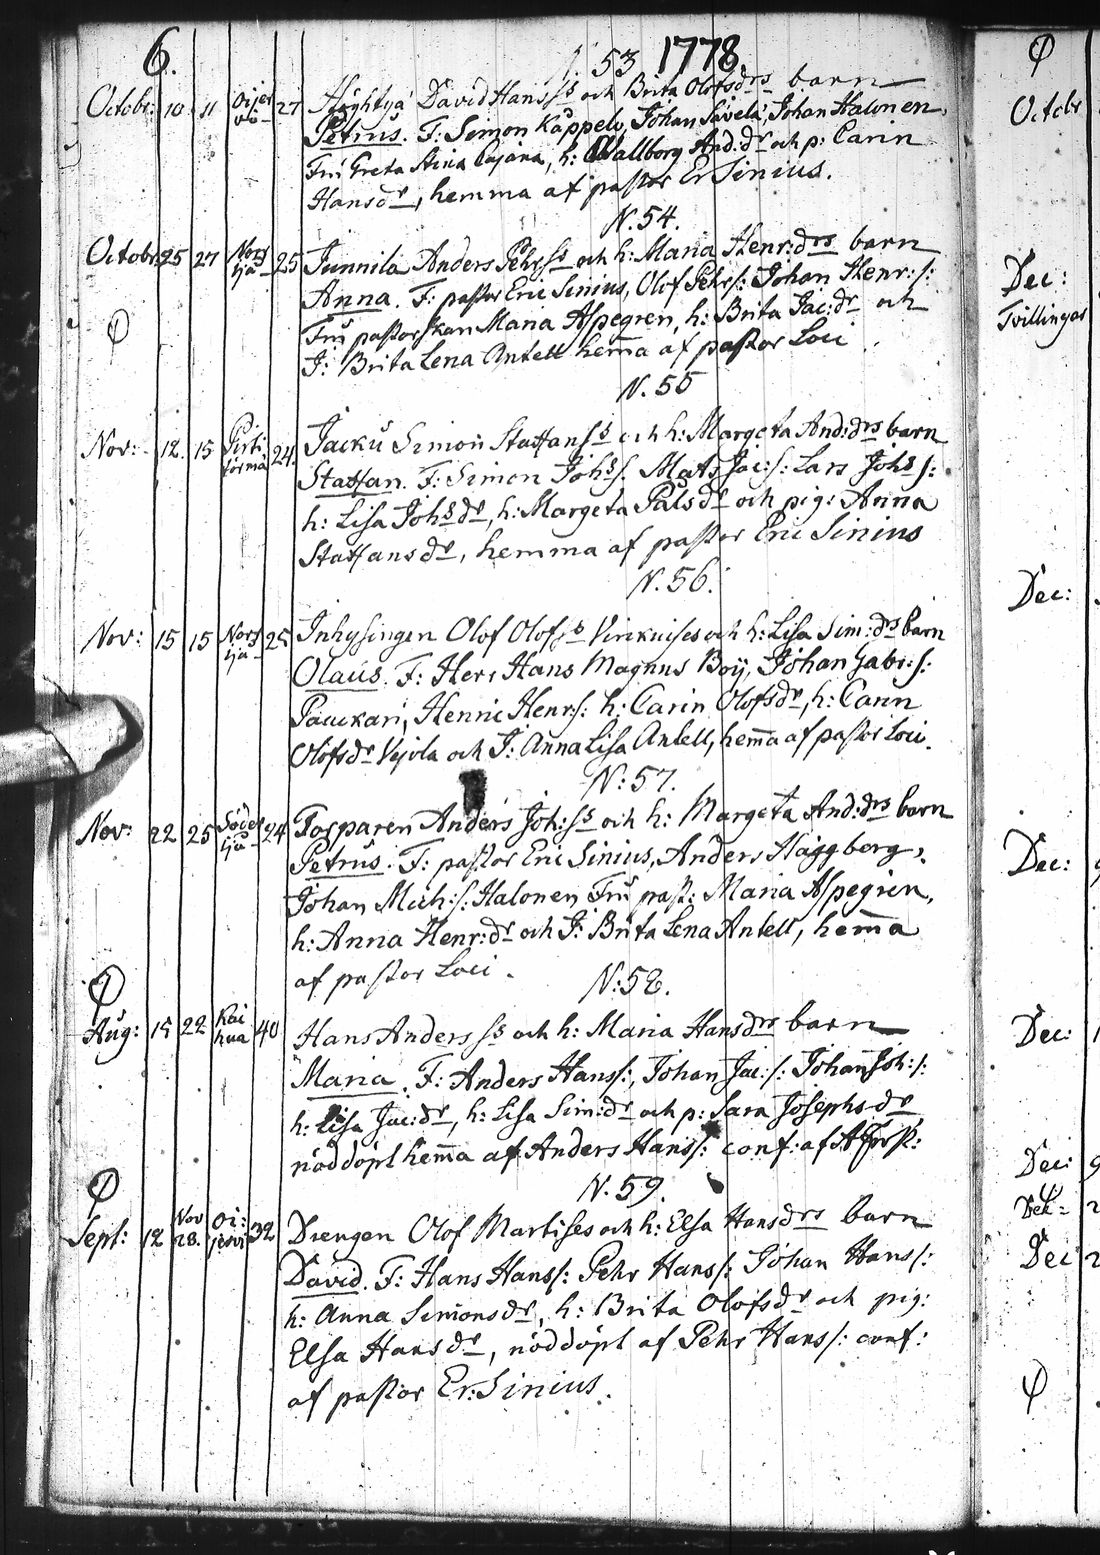 6.
N. 53 1778.
Octobr: 10 11 Oijer vä 27 Höghtya David Hanss:s och Brita Olofsdrs barn
Petrus. F: Simon Käppelv, Johan Savela, Johan Halonen,
Fru Greta Stina Cajana, h: Wallborg And:dr och p: Carin
Hansdr, hemma af pastor Er Sinius.
N. 54.
Octobr: 25 27 Nors ijä 25 Junnila Anders Pehrs:s och h: Maria Henr:drs barn
Anna. F: pastor Eric Sinius, Olof Pehrs: Johan Henr:s:
Fru pastorskan Maria Aspegren, h: Brita Jac:dr och
J: Brita Lena Antell hemma af pastor Loci.
N. 55
Nov: 12. 15 Pirti- 24. Jacku Simon Staffans:s och h: Margeta And:drs barn
Staffan. F: Simon Johs:s. Mats Jac:s: Lars Johs s:
h: Lisa Johsdr, h: Margeta Pålsdr och pig: Anna
Staffansdr, hemma af pastor Eric Sinius
N. 56.
Nov: 15 15 Nors ijä 25 Inhysingen Olof Olofs:s och h: Lisa Sim:drs barn
Olaus. F: Herr Hans Magnus Boij, Johan Gabr:s:
Pauckari, Henric Henr:s: h: Carin Olofsdr, h: Carin
Olofsdr Vejola och J: Anna Lisa Antell, hemma af pastor Loci.
N: 57.
Nov: 22 25 Söder ijä 24 Torparen Anders Joh:s:s och h: Margeta And:drs barn
Petrus. F: pastor Eric Sinius, Anders Häggberg,
Johan Mich:s: Halonen Fru past: Maria Aspegren,
h: Anna Henr:dr och J: Brita Lena Antell, hemma
af pastor Loci.
N: 58.
Aug: 15 22 Kai hua 40 Hans Anders s:s och h: Maria Hansdrs barn
Maria. F: Anders Hans s:, Johan Jac:s: Johan Joh:s:
h: Lisa Jac:dr, h: Lisa Sim:dr och p: Sara Josephsdr
nöddöpt hemma af Anders Hans s: conf: af
N. 59.
Sept: 12 Nov 28. Oi: jervi 32 Drengen Olof Martises och h: Elsa Hansdrs barn
David. F: Hans Hans s: Pehr Hans s: Johan Hans s:
h: Anna Simonsdr, h: Brita Olofsdr och pig:
Elsa Hansdr, nöddöpt af Pehr Hans s: conf:
af pastor Er: Sinius.
Octobr
Dec:
Tvillingar
Dec:
Dec:
Dec:
Dec:
Dec:
Dec